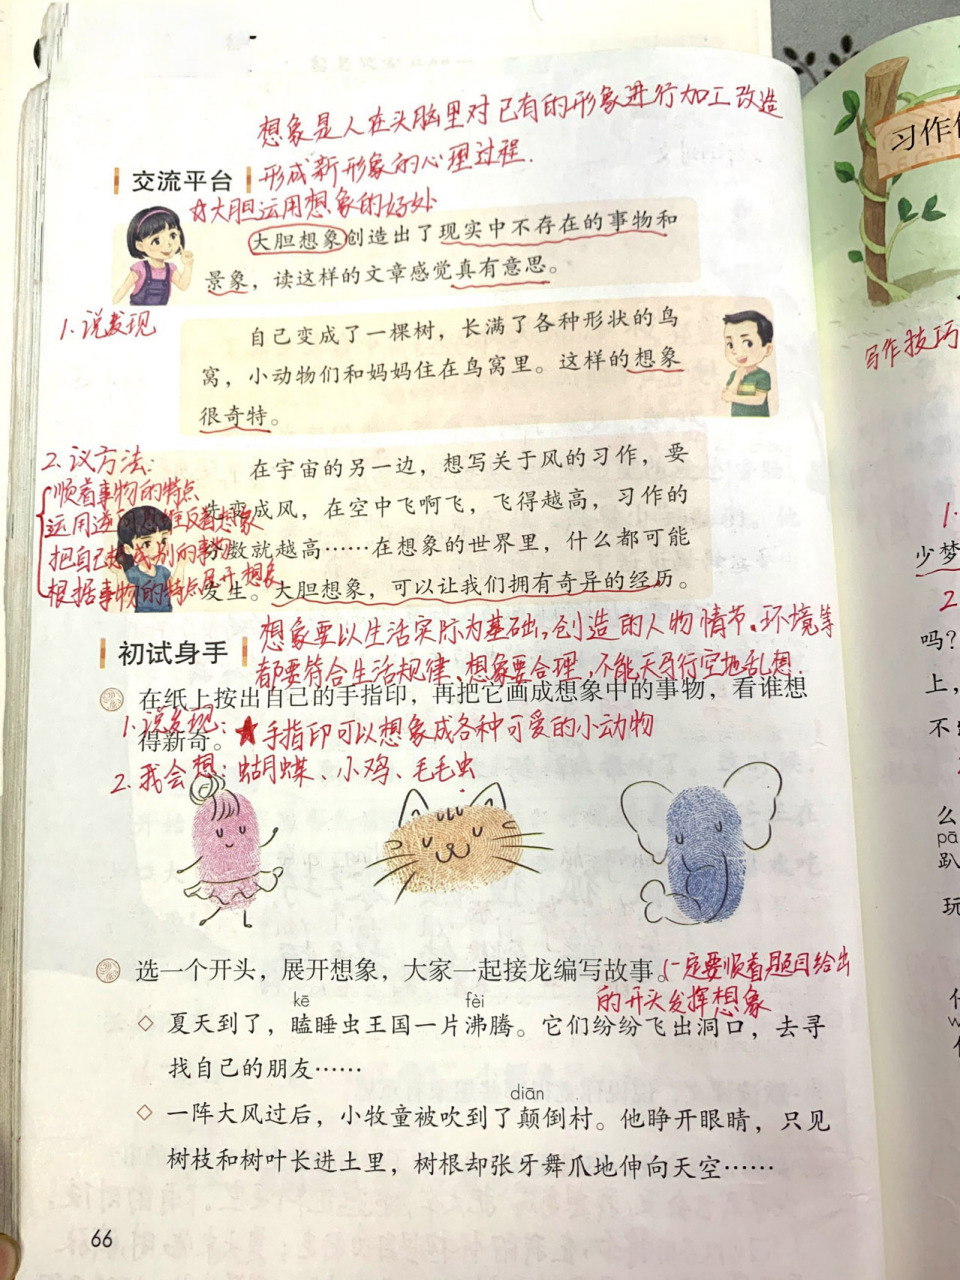 想象是人在头脑里对已有的形象进行加工改造
形成新形象的心理过程.
交流平台
☆大胆运用想象的好处
大胆想象创造出了现实中不存在的事物和
景象，读这样的文章感觉真有意思。
1.说发现
自己变成了一棵树，长满了各种形状的鸟
窝，小动物们和妈妈住在鸟窝里。这样的想象
很奇特。
2.议方法:
顺着事物的特点
运用逆向思维反着想象
把自己想成别的事物
根据事物的特点展开想象
在宇宙的另一边，想写关于风的习作，要
变成风，在空中飞啊飞，飞得越高，习作的
数就越高……在想象的世界里，什么都可能
发生。大胆想象，可以让我们拥有奇异的经历。
初试身手
想象要以生活实际为基础,创造的人物情节、环境等
都要符合生活规律、想象要合理,不能天马行空地乱想.
在纸上按出自己的手指印，再把它画成想象中的事物，看谁想
得新奇。
1.说发现:★手指印可以想象成各种可爱的小动物
2.我会想:蝴蝶、小鸡、毛毛虫
选一个开头，展开想象，大家一起接龙编写故事。
(一定要顺着题目给出
的开头发挥想象
kē fèi
夏天到了，瞌睡虫王国一片沸腾。它们纷纷飞出洞口，去寻
找自己的朋友……
diān
一阵大风过后，小牧童被吹到了颠倒村。他睁开眼睛，只见
树枝和树叶长进土里，树根却张牙舞爪地伸向天空……
66
习作
写作技巧
1.
少梦
2
吗？
上，
不
么
pā
趴
玩